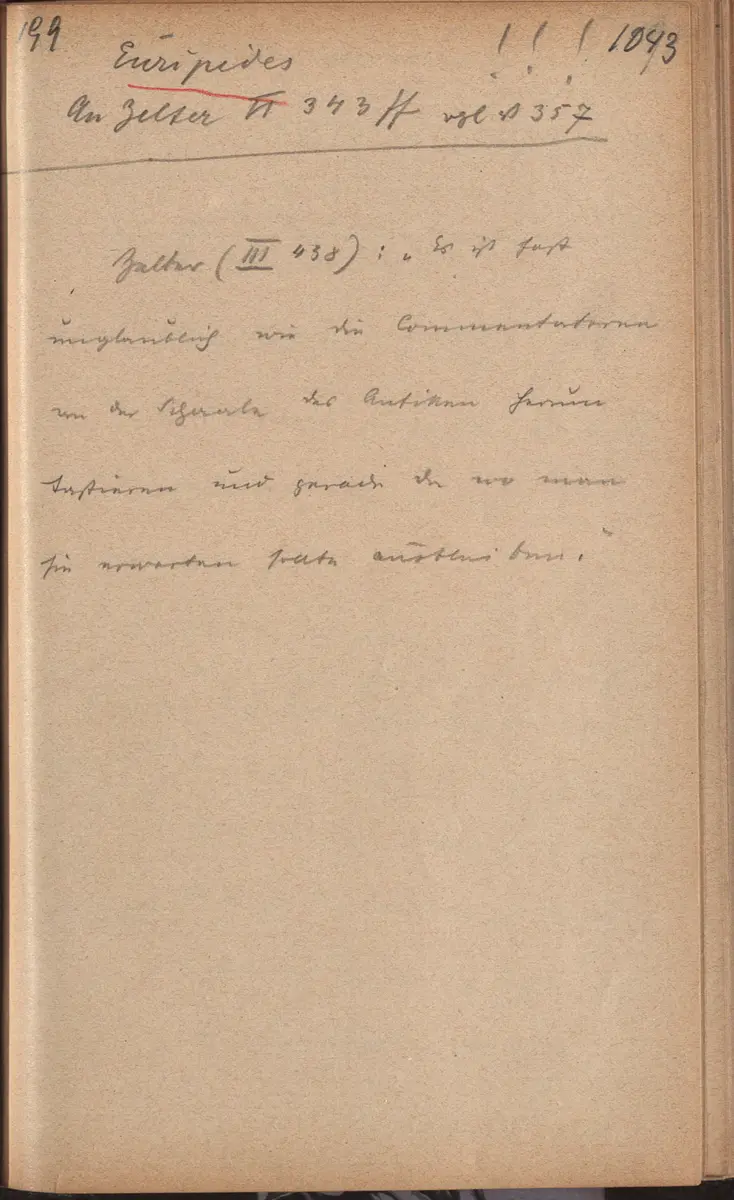 199 ! ! ! 1043
Euripides
An Zelter VI 343 ff vgl S 357
Zelter (III 438): „Es ist fast
unglaublich wie die Commentatoren
an der Schaale des Antiken herum
tastieren und gerade da wo man
sie erwarten sollte ausbleiben."